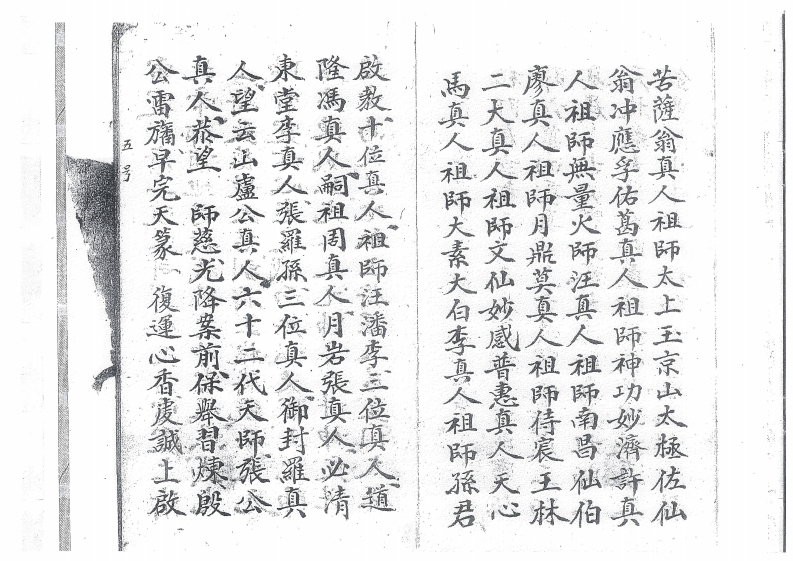 苦薩翁真人祖師太上玉京山太極佐仙
翁冲應孚佑葛真人祖師神功妙濟許真
人祖師無量火師汪真人祖師南昌仙伯
廖真人祖師月鼎莫真人祖師侍宸王林
二大真人祖師文仙妙感普惠真人天心
馬真人祖師大素大白李真人祖師孫君
啟教十位真人祖師汪潘李三位真人道
隆馮真人嗣祖周真人月岩張真人必清
東堂李真人張羅孫三位真人御封羅真
人望云山盧公真人六十二代天師張公
真人菘望 師慈光降案前保舉習煉殷
公雷 早完天篆 復運心香虔誠上啟
五号